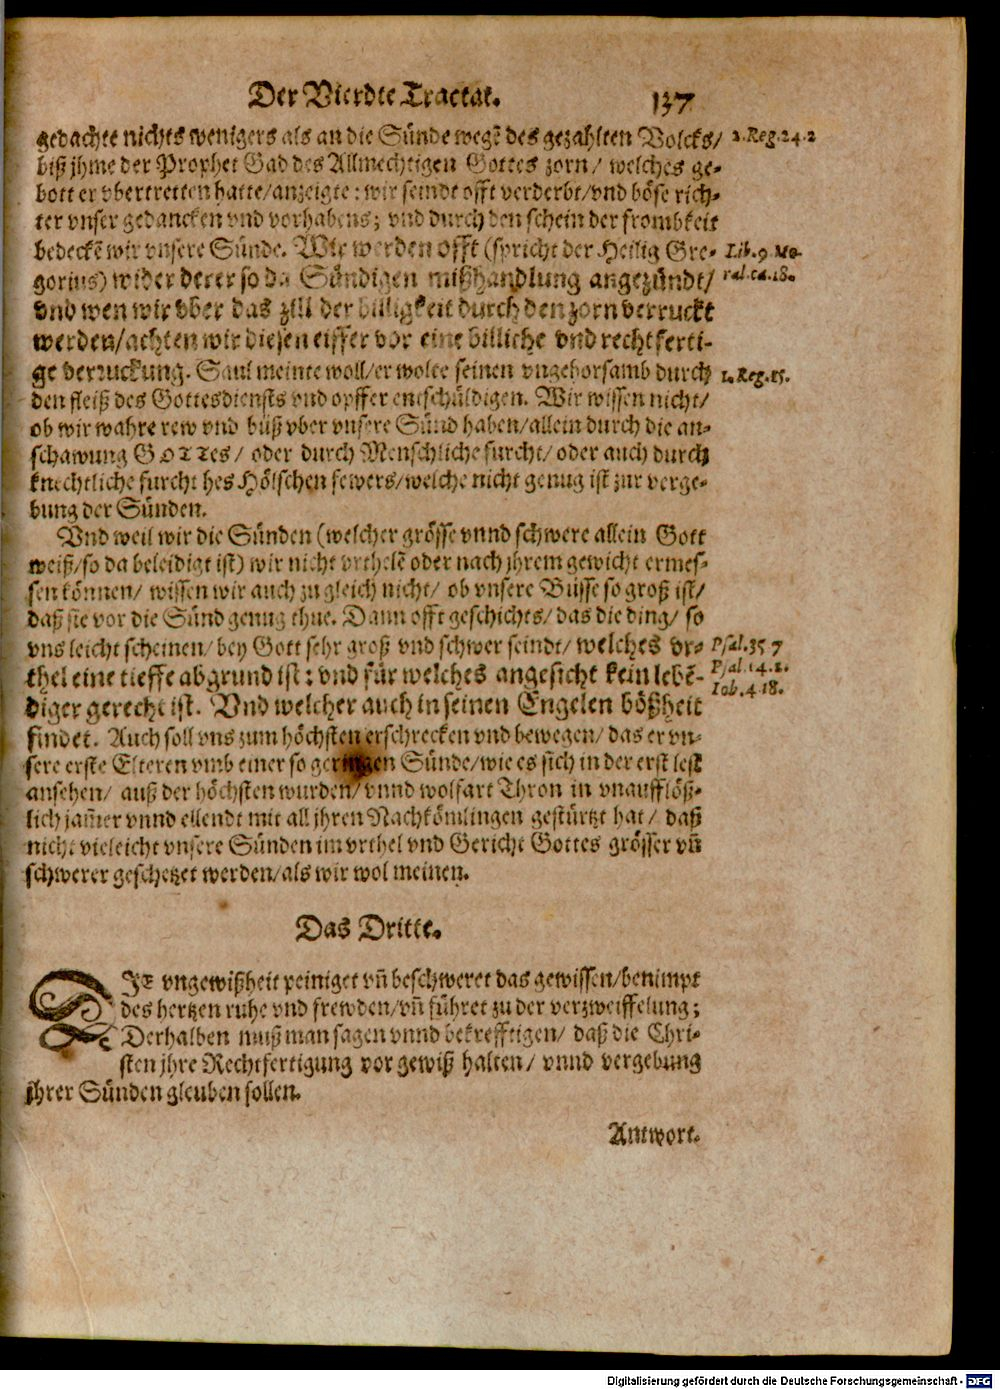 Der Vierdte Tractat. 137
gedachte nichts wenigers als an die Sünde wegẽ des gezahlten Volcks/ 2. Reg. 24. 2
biß jhme der Prophet Gad des Allmechtigen Gottes zorn/ welches ge-
bott er vbertretten hatte/anzeigte: wir seindt offt verderbt/vnd böse rich-
ter vnser gedancken vnd vorhabens; vnd durch den schein der frombkeit
bedeckẽ wir vnsere Sünde. Wir werden offt (spricht der Heilig Gre- Lib. 9 Mo-
gorius) wider derer so da Sündigen mißhandlung angezündt/ ral. ca. 18.
vnd wen wir vber das zill der billigkeit durch den zorn verruckt
werden/achten wir diesen eiffer vor eine billiche vnd rechtferti-
ge verruckung. Saul meinte woll/er wolte seinen vngehorsamb durch 1. Reg. 15.
den fleiß des Gottesdiensts vnd opffer entschüldigen. Wir wissen nicht/
ob wir wahre rew vnd büß vber vnsere Sünd haben/allein durch die an-
schawung GOTTes/ oder durch Menschliche furcht/ oder auch durch
knechtliche furcht hes Hölschen fewers/welche nicht genug ist zur verge-
bung der Sünden.
Vnd weil wir die Sünden (welcher grösse vnnd schwere allein Gott
weiß/so da beleidigt ist) wir nicht vrthelẽ oder nach jhrem gewicht ermes-
sen können/ wissen wir auch zu gleich nicht/ ob vnsere Büsse so groß ist/
daß sie vor die Sünd genug thue. Dann offt geschichts/ das die ding/ so
vns leicht scheinen/ bey Gott sehr groß vnd schwer seindt/ welches vr- Psal. 35 7
thel eine tieffe abgrund ist: vnd für welches angesicht kein lebẽ- Psal. 14. 2.
diger gerecht ist. Vnd welcher auch in seinen Engelen bößheit Iob. 4. 18.
findet. Auch soll vns zum höchsten erschrecken vnd bewegen/ das er vn-
sere erste Elteren vmb einer so geringen Sünde/wie es sich in der erst lest
ansehen/ auß der höchsten wurden/ vnnd wolfart Thron in vnaufflöß-
lich jam̃er vnnd ellendt mit all jhren Nachkömlingen gestürtzt hat/ daß
nicht vieleicht vnsere Sünden im vrthel vnd Gericht Gottes grösser vñ
schwerer geschetzet werden/als wir wol meinen.
Das Dritte.
DIE vngewißheit peiniget vñ beschweret das gewissen/benimpt
des hertzen ruhe vnd frewden/vñ führet zu der verzweiffelung;
Derhalben muß man sagen vnnd bekrefftigen/ daß die Chri-
sten jhre Rechtfertigung vor gewiß halten/ vnnd vergebung
jhrer Sünden gleuben sollen.
Antwort.
Digitalisierung gefördert durch die Deutsche Forschungsgemeinschaft - DFG